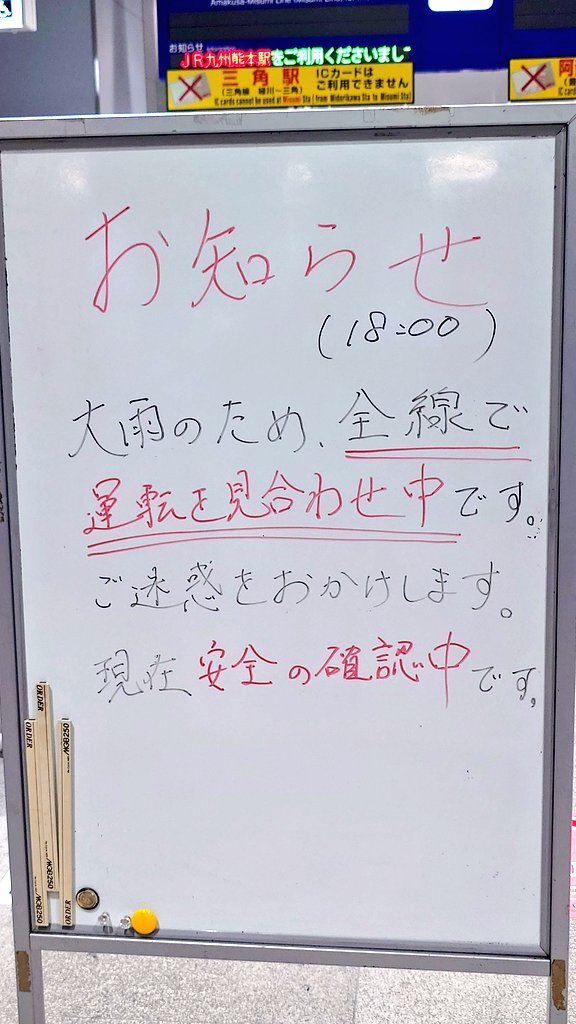 Amakusa-Misumi Line (Misumi Line)
お知らせ
JR九州熊本駅をご利用くださいまし
三角駅 ICカードは
(三角線 緑川～三角) ご利用できません
IC cards cannot be used at Misumi Sta (from Midorikawa Sta to Misumi Sta)
阿
IC car
お知らせ
(18:00)
大雨のため、全線で
運転を見合わせ中です。
ご迷惑をおかけします。
現在安全の確認中です。
ORDER
ORDER
MGB250
MGB250
MGB250
ORDER